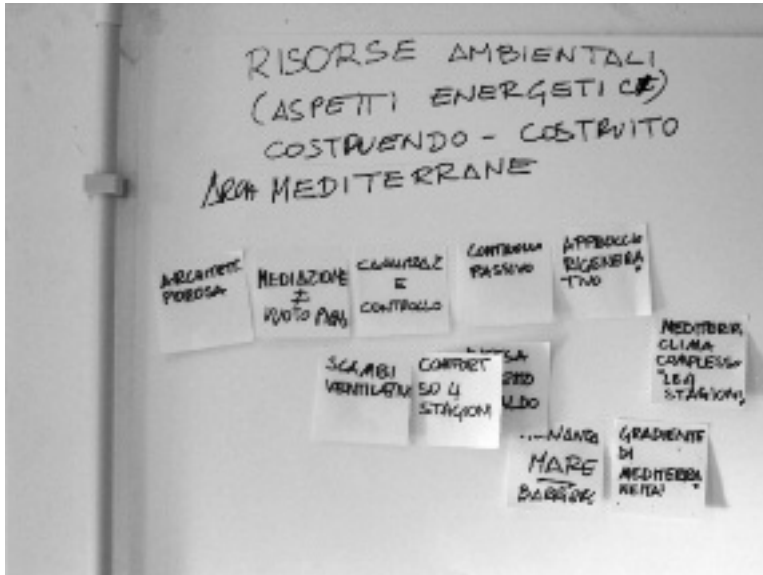 RISORSE AMBIENTALI
(ASPETTI ENERGETICI)
COSTRUENDO - COSTRUITO
ARCH MEDITERRANE
ARCHITETT
POROSA
MEDIAZIONE
VUOTO
E
CONTROLLO
CONTROLLO
PASSIVO
APPROCCIO
RIGENERA
TIVO
MEDITERR
CLIMA
COMPLESSO
"LE 4
STAGIONI"
SCAMBI
VENTILATIVI
COMFORT
SU 4
STAGIONI
MARE
GRADIENTE
DI
MEDITERRA
NEITA'